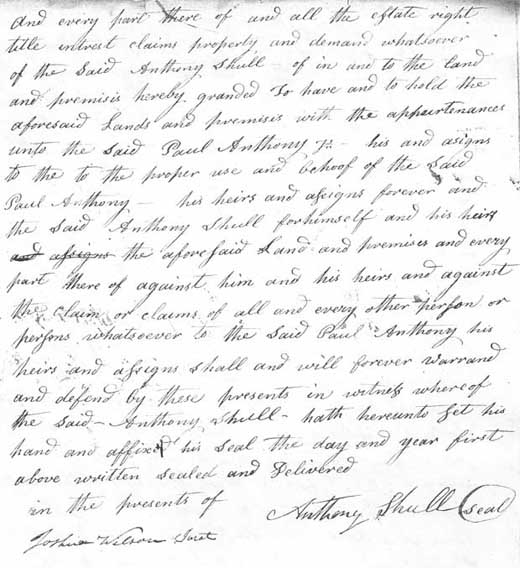 and every part there of and all the estate right
title intrest claims property and demand whatsoever
of the Said Anthony Shull - of in and to the land
and premisis hereby granded To have and to hold the
aforesaid Lands and premisis with the appurtinances
unto the Said Paul Anthony Jr - his and asigns
to the to the proper use and behoof of the Said
Paul Anthony - his heirs and assigns forever and
the Said Anthony Shull forhimself and his heirs
and assigns the aforesaid Land and premises and every
part there of against him and his heirs and against
the claim or claims of all and every other person or
persons whatsoever to the Said Paul Anthony his
heirs and assigns Shall and will forever warrand
and defend by these presents in witness whereof
the Said - Anthony Shull - hath hereunto Set his
hand and affixed his Seal the day and year first
above written Sealed and Delivered
in the presents of
Anthony Shull Seal
Joshua Wilson